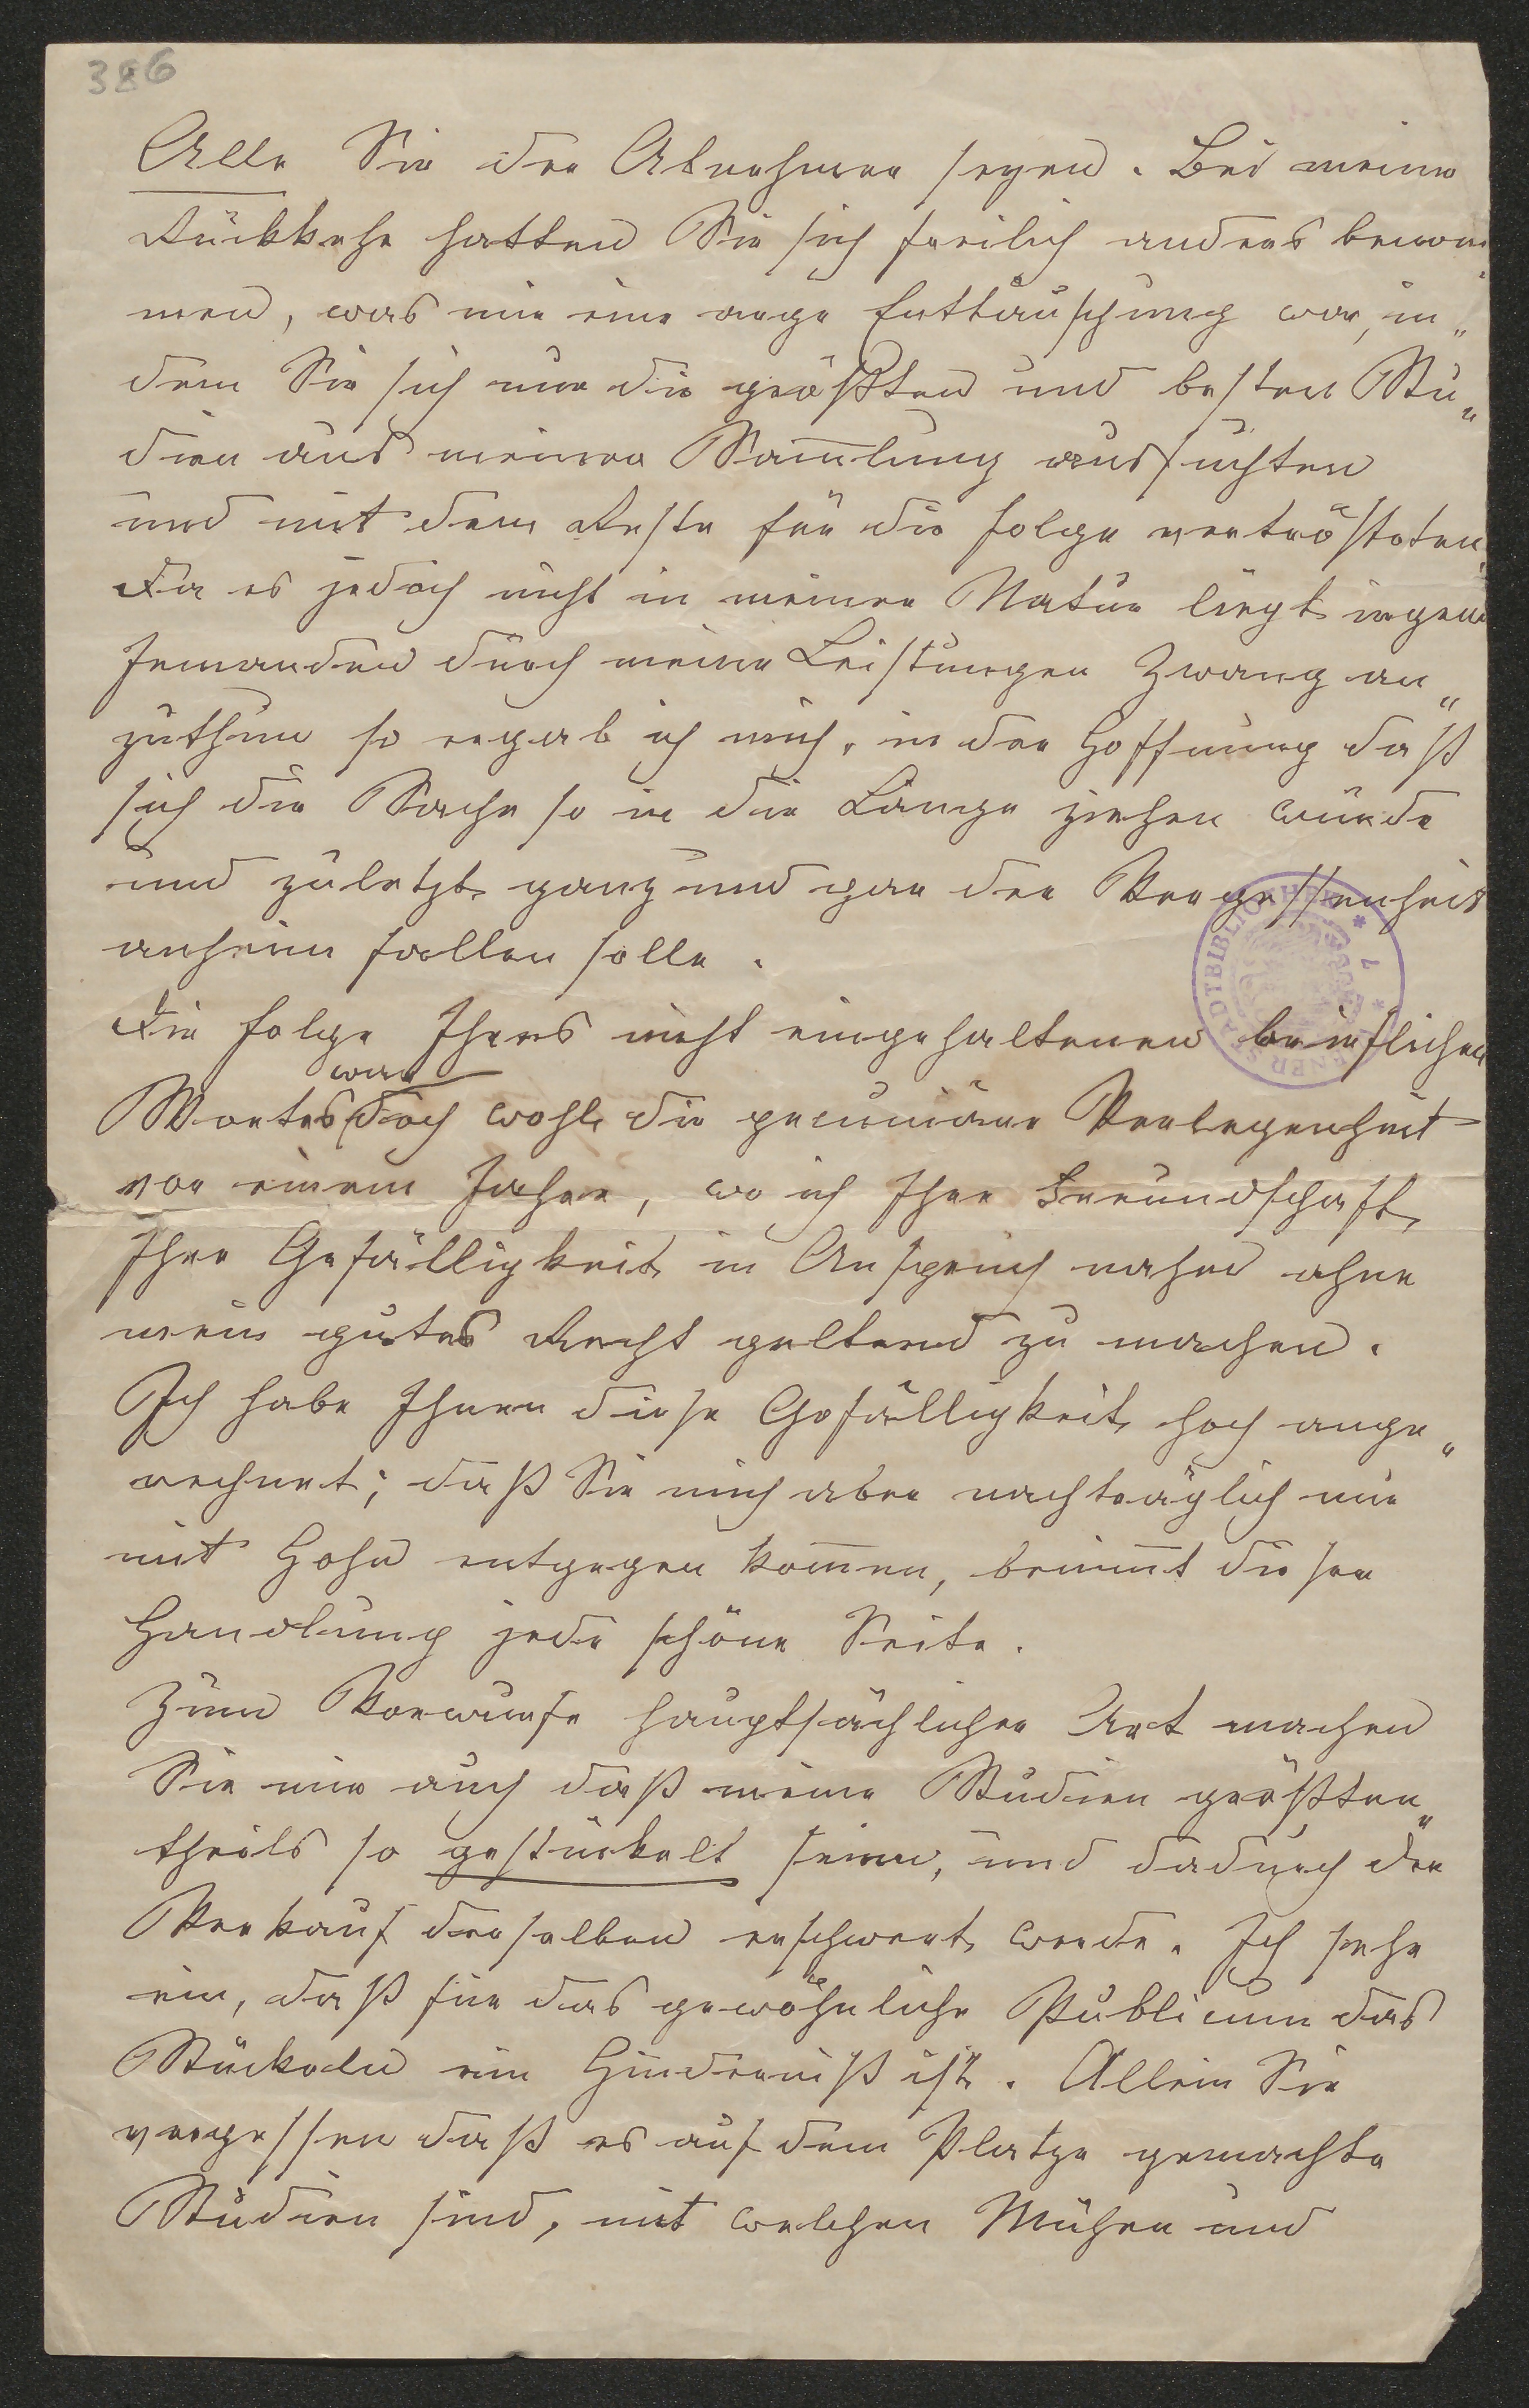 386
Alle Sie der Abnehmer seyen. Bei meiner
Rückkehr hatten Sie sich freilich anders benom
men, was mir eine arge Enttäuschung war, in„
dem Sie sich nur die größten und besten Stu„
dien aus meiner Samlung aussuchten
und mit dem Reste für die Folge vertrösteten.
Da es jedoch nicht in meiner Natur liegt irgend
Jemanden durch meine Leistungen Zwang an„
zuthun so ergab ich mich, in der Hoffnung daß
sich die Sache so in die Länge ziehen würde
und zuletzt ganz und gar der Vergessenheit
anheim fallen solle.
STADTBIBLIOTHEK
Die Folge Ihres nicht eingehaltenen brieflichen
war
Wortes doch wohl die pecuniäre Verlegenheit
vor einem Jahre, wo ich Ihre Freundschaft,
Ihre Gefälligkeit in Anspruch nahm ohne
mein gutes Recht geltend zu machen.
Ich habe Ihnen diese Gefälligkeit hoch ange„
rechnet; daß Sie mich aber nachträglich nur
mit Hohn entgegen komen, benimt dieser
Handlung jede schöne Seite.
Zum Vorwurfe hauptsächlicher Art machen
Sie mir auch daß meine Studien größten„
theils so gestückelt seien, und dadurch der
Verkauf derselben erschwert werde. Ich sehe
ein, daß für das gewöhnliche Publicum das
Stückeln ein Hinderniß ist. Allein Sie
vergessen daß es auf dem Platze gemachte
Studien sind, mit welchen Mühen und